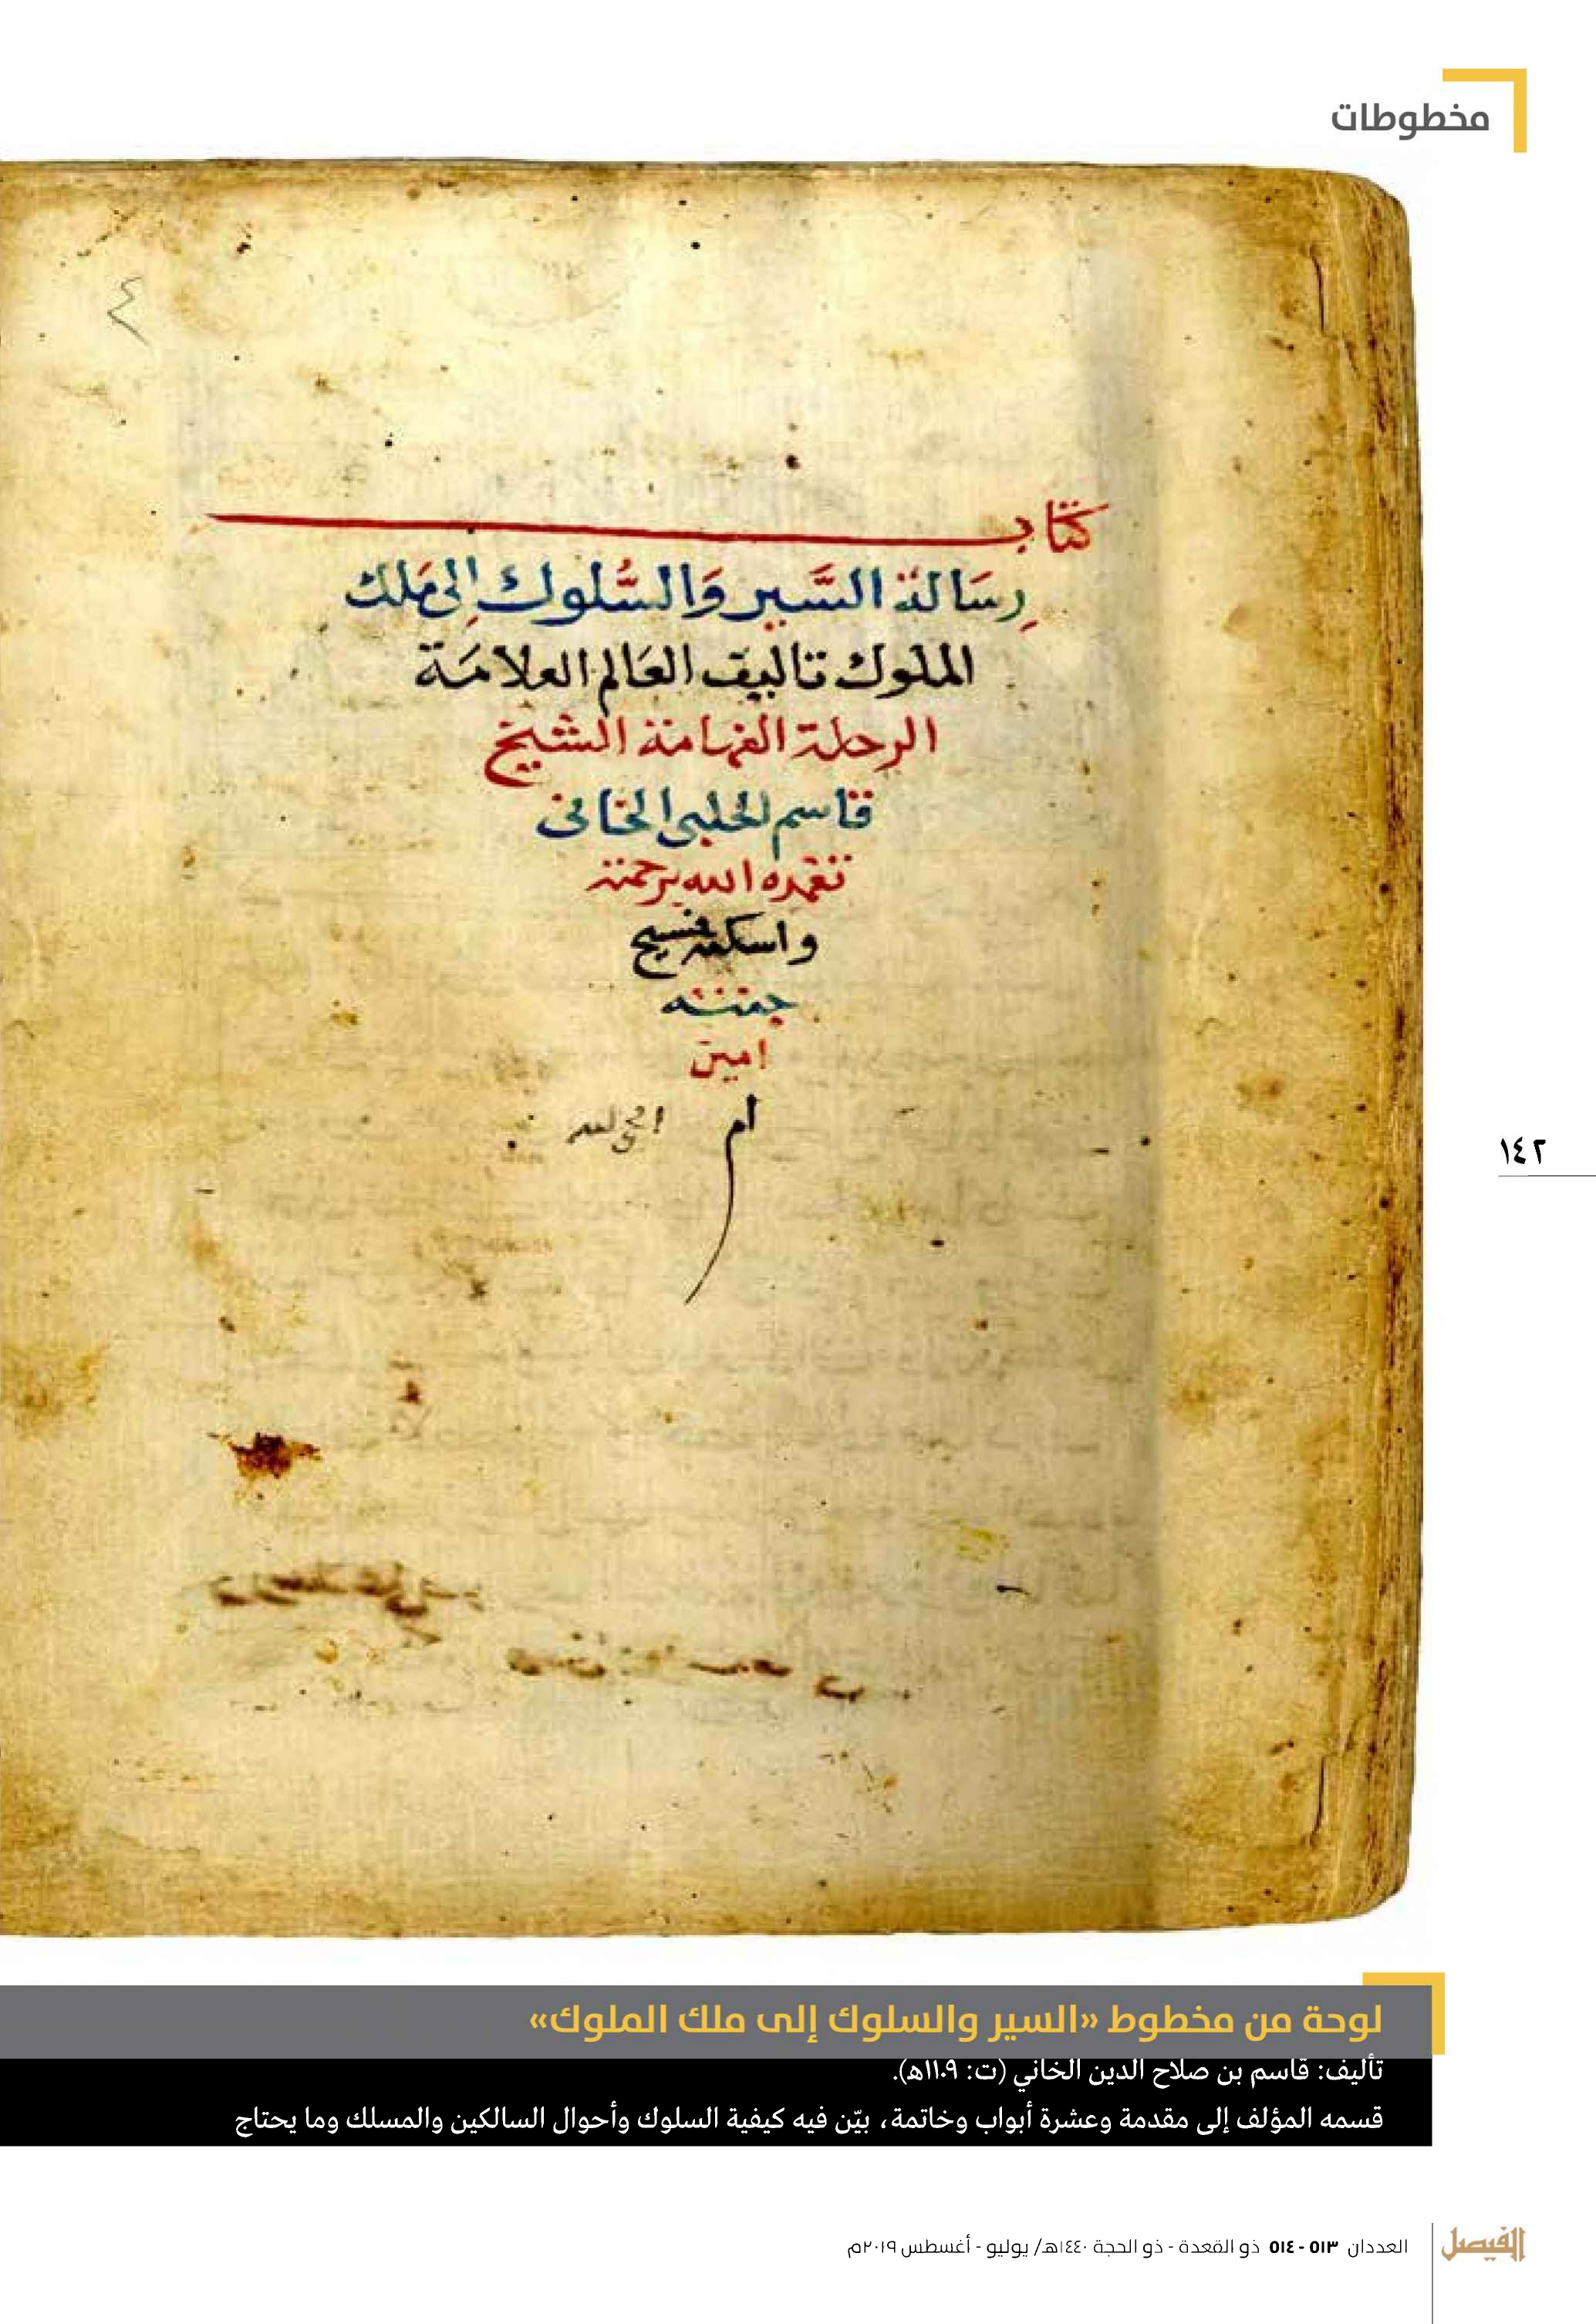 مخطوطات
٤
كتاب
رِسَالة السَّير وَالسُّلوك إلى مَلك
الملوك تاليف العَالم العلامَة
الرحلة الفهامة الشيخ
قاسم الحلبي الخاني
تغمده الله برحمته
واسكنه فسيح
جنته
امين
ام
١٤٢
لوحة من مخطوط «السير والسلوك إلى ملك الملوك»
تأليف: قاسم بن صلاح الدين الخاني (ت: ١١٠٩هـ).
قسمه المؤلف إلى مقدمة وعشرة أبواب وخاتمة، بيّن فيه كيفية السلوك وأحوال السالكين والمسلك وما يحتاج
الفيصل
العددان ٥١٣ - ٥١٤ ذو القعدة - ذو الحجة ١٤٤٠هـ/ يوليو - أغسطس ٢٠١٩م